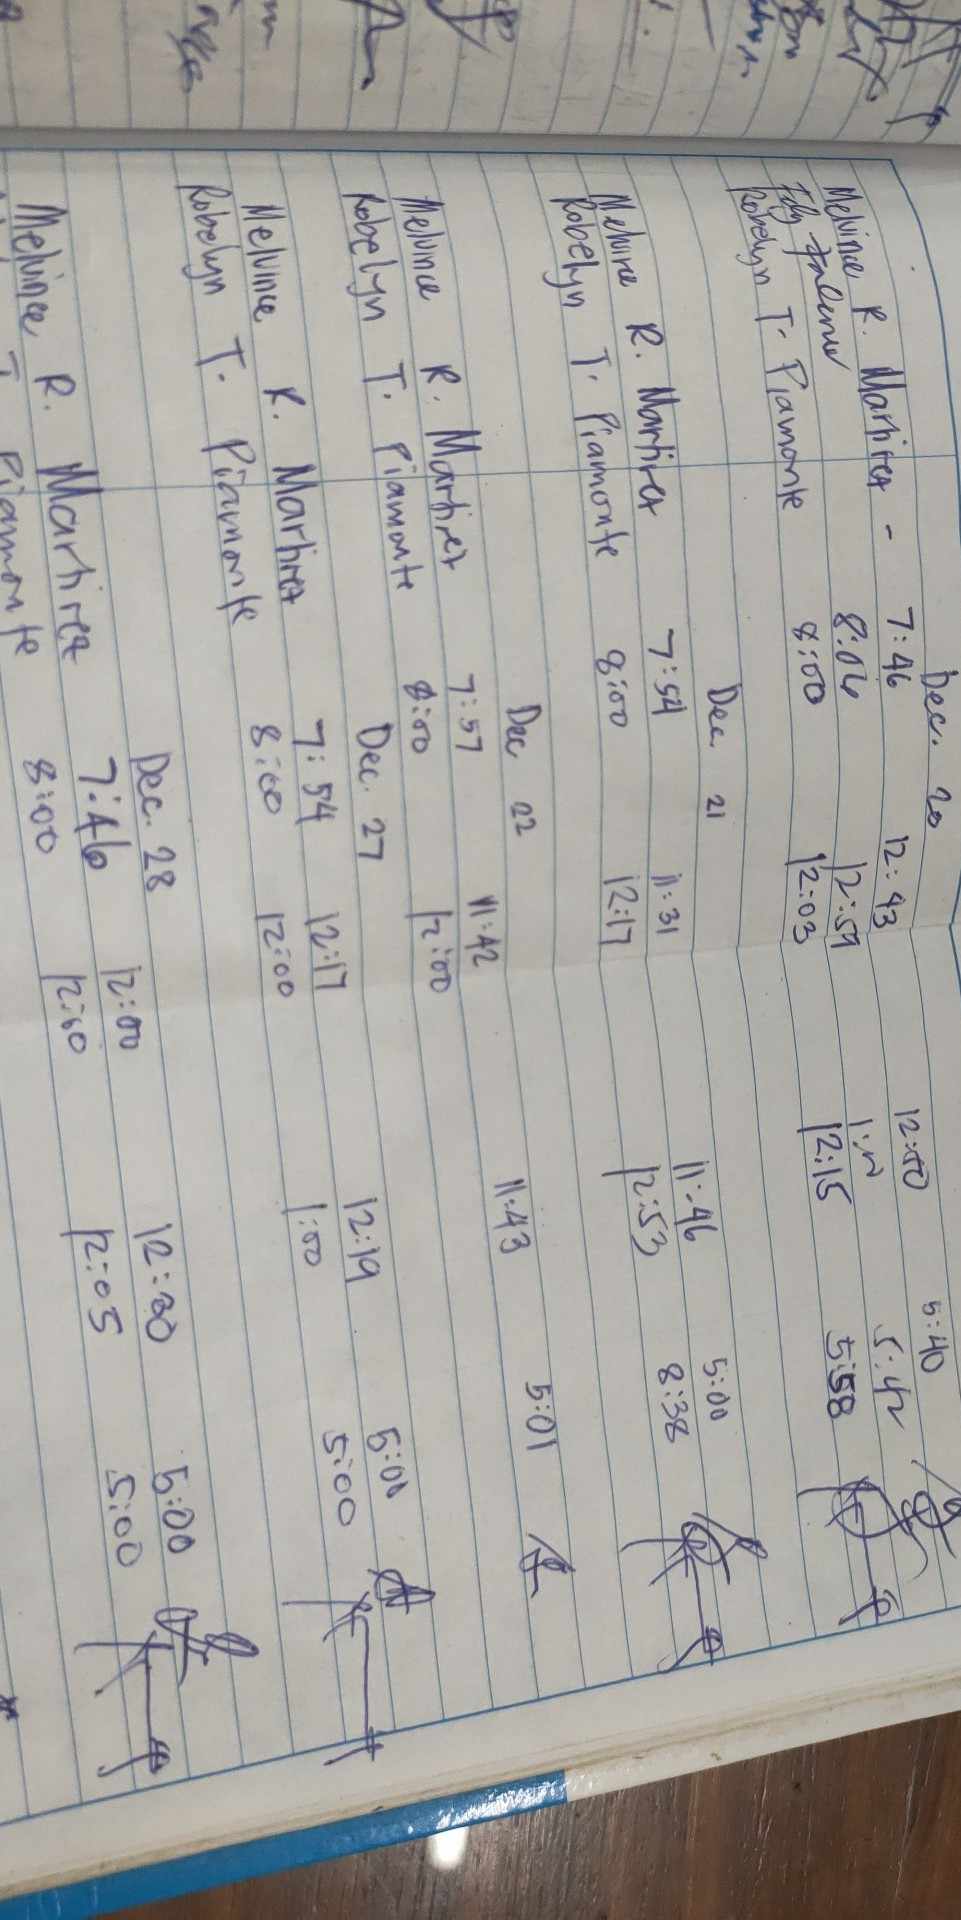 Dec. 20
Melvince R. Martirez - 7:46 12:43 12:50 5:40
8:06 12:59 5:42
Robelyn T. Piamonte 8:00 12:03 12:15 5:58
Dec. 21
Melvince R. Martirez 7:54 11:31 11:46 5:00
Robelyn T. Piamonte 8:00 12:17 12:53 8:38
Dec 22
Melvince R. Martirez 7:57 11:42 11:43 5:01
Robelyn T. Piamonte 8:00 12:00
Dec. 27
Melvince R. Martirez 7:54 12:17 12:19 5:00
Robelyn T. Piamonte 8:00 12:00 1:00 5:00
Dec. 28
Melvince R. Martirez 7:46 12:00 12:30 5:00
T Piamonte 8:00 12:00 12:05 5:00